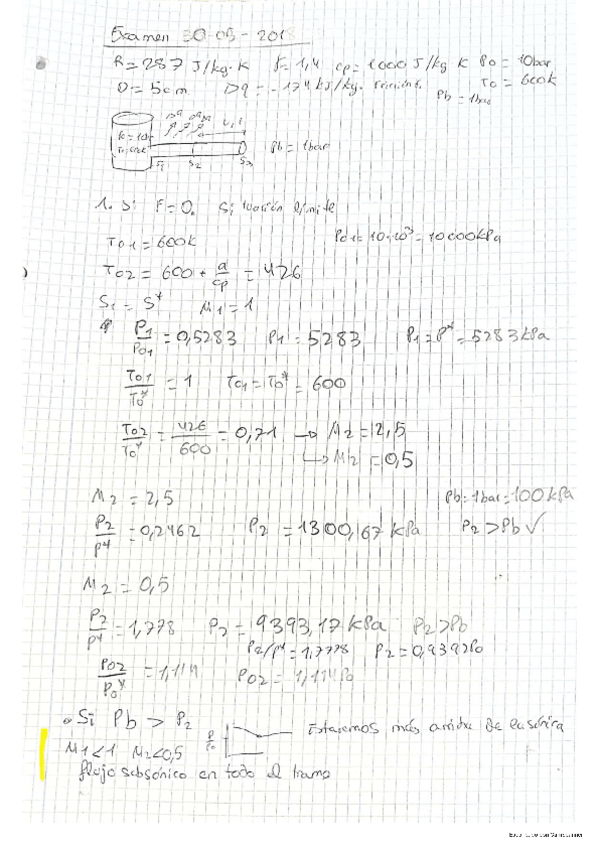 Examen 30-05-201
R = 287 J/kg·K γ = 1,4 cp = 1000 J/kg K P0 = 10bar
D = 5cm Dq = -174 kJ/kg. T0 = 600k
Pb = 1bar
Pb = 1bar
S1 S2 S3
1. Si F = 0. Situación límite
T01 = 600k P01 = 10·10³ = 10000kPa
T02 = 600 + q/cp = 426
S1 = S* M1 = 1
P1/P01 = 0,5283 P1 = 5283 P1 = P* = 5283kPa
T01/T0* = 1 T01 = T0* = 600
T02/T0* = 426/600 = 0,71 → M2 = 2,5
↳ M2 = 0,5
M2 = 2,5 Pb = 1bar = 100kPa
P2/P* = 0,2462 P2 = 1300,67 kPa P2 > Pb ✓
M2 = 0,5
P2/P* = 1,778 P2 = 9393,17 kPa P2 > Pb
P2/P* = 1,7778 P2 = 0,9392P0
P02/P0* = 1,114 P02 = 1,114P0
• Si Pb > P2 P/P0 Estaremos más arriba de
M1 < 1 M2 < 0,5
flujo subsónico en todo el tramo